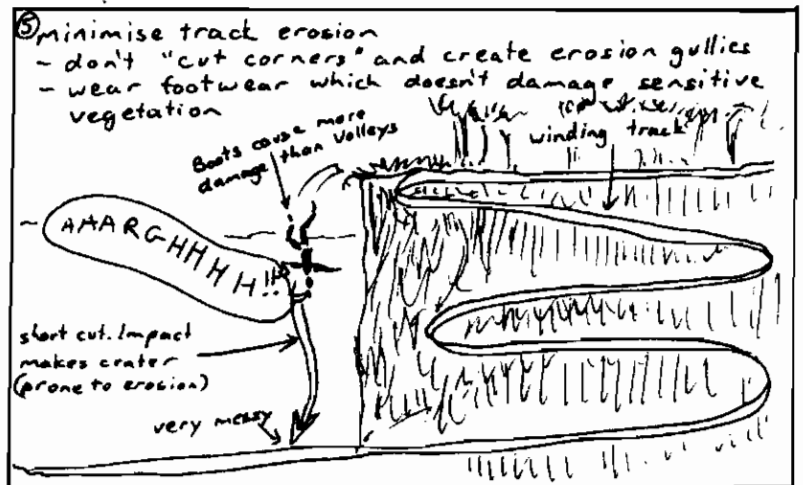 ⑤ minimise track erosion
- don't "cut corners" and create erosion gullies
- wear footwear which doesn't damage sensitive
vegetation
Boots cause more
damage than Volleys
winding track
AAARGHHHH!!
short cut. Impact
makes crater
(prone to erosion)
very messy